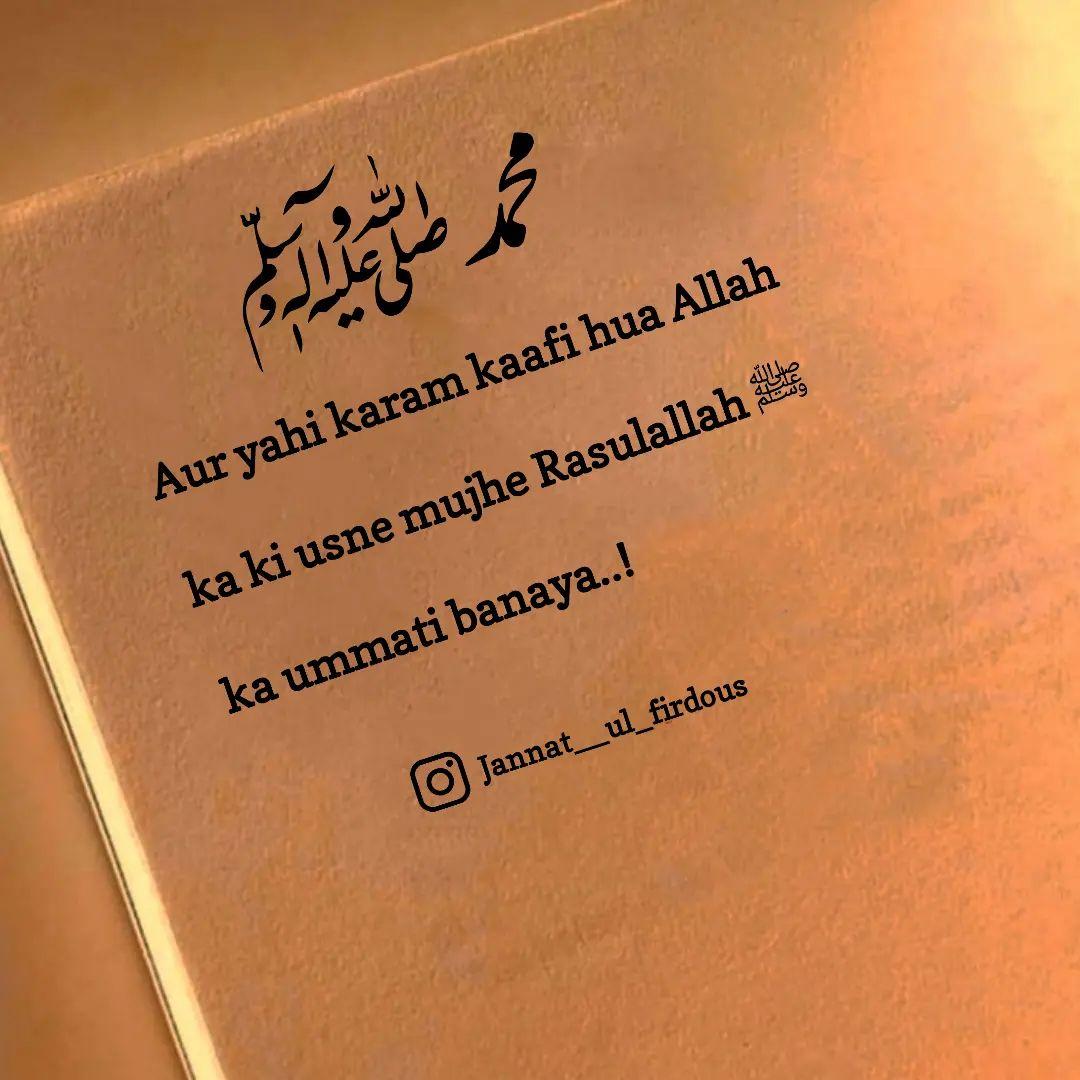 محمد صلى الله عليه وآله وسلم
Aur yahi karam kaafi hua Allah
ka ki usne mujhe Rasulallah ﷺ
ka ummati banaya..!
Jannat__ul_firdous